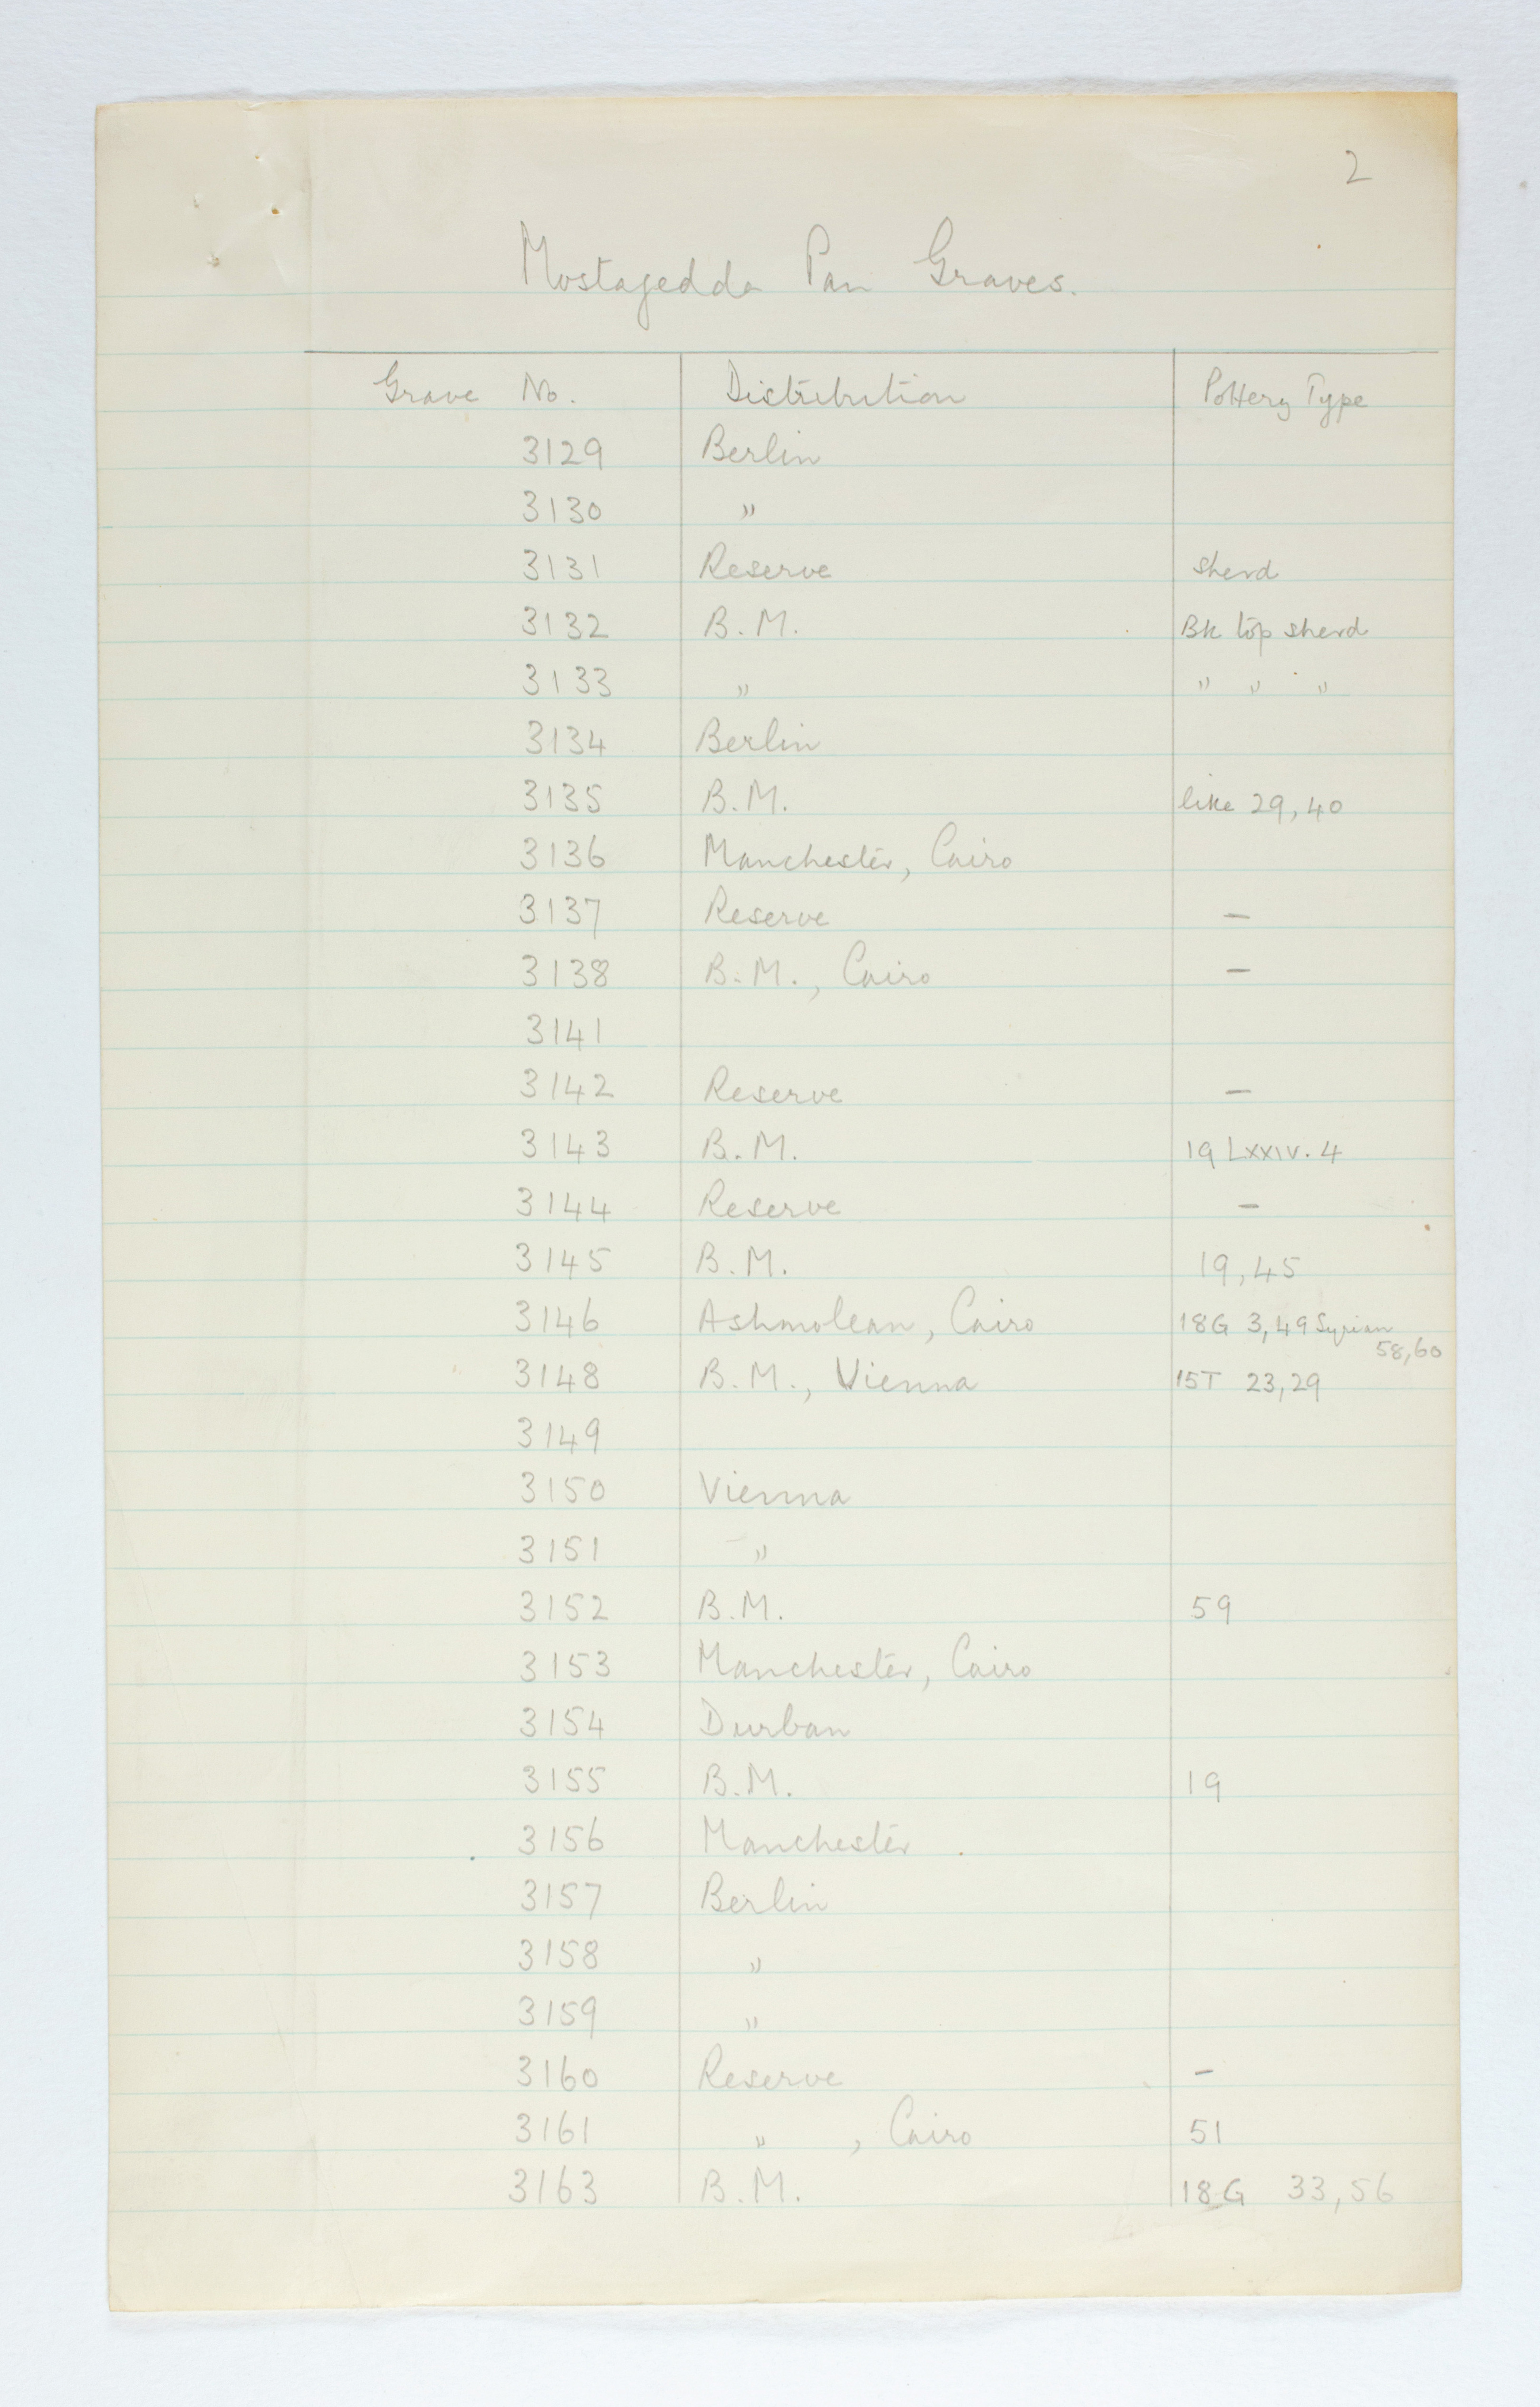 2
Mostagedda Pan Graves.
Grave No. Distribution Pottery Type
3129 Berlin
3130 "
3131 Reserve sherd
3132 B.M. Bk top sherd
3133 " " " "
3134 Berlin
3135 B.M. like 29, 40
3136 Manchester, Cairo
3137 Reserve –
3138 B.M., Cairo –
3141
3142 Reserve –
3143 B.M. 19 LXXIV. 4
3144 Reserve –
3145 B.M. 19, 45
3146 Ashmolean, Cairo 18G 3, 49 Syrian
58, 60
3148 B.M., Vienna 15T 23, 29
3149
3150 Vienna
3151 "
3152 B.M. 59
3153 Manchester, Cairo
3154 Durban
3155 B.M. 19
3156 Manchester
3157 Berlin
3158 "
3159 "
3160 Reserve –
3161 " , Cairo 51
3163 B.M. 18G 33, 56